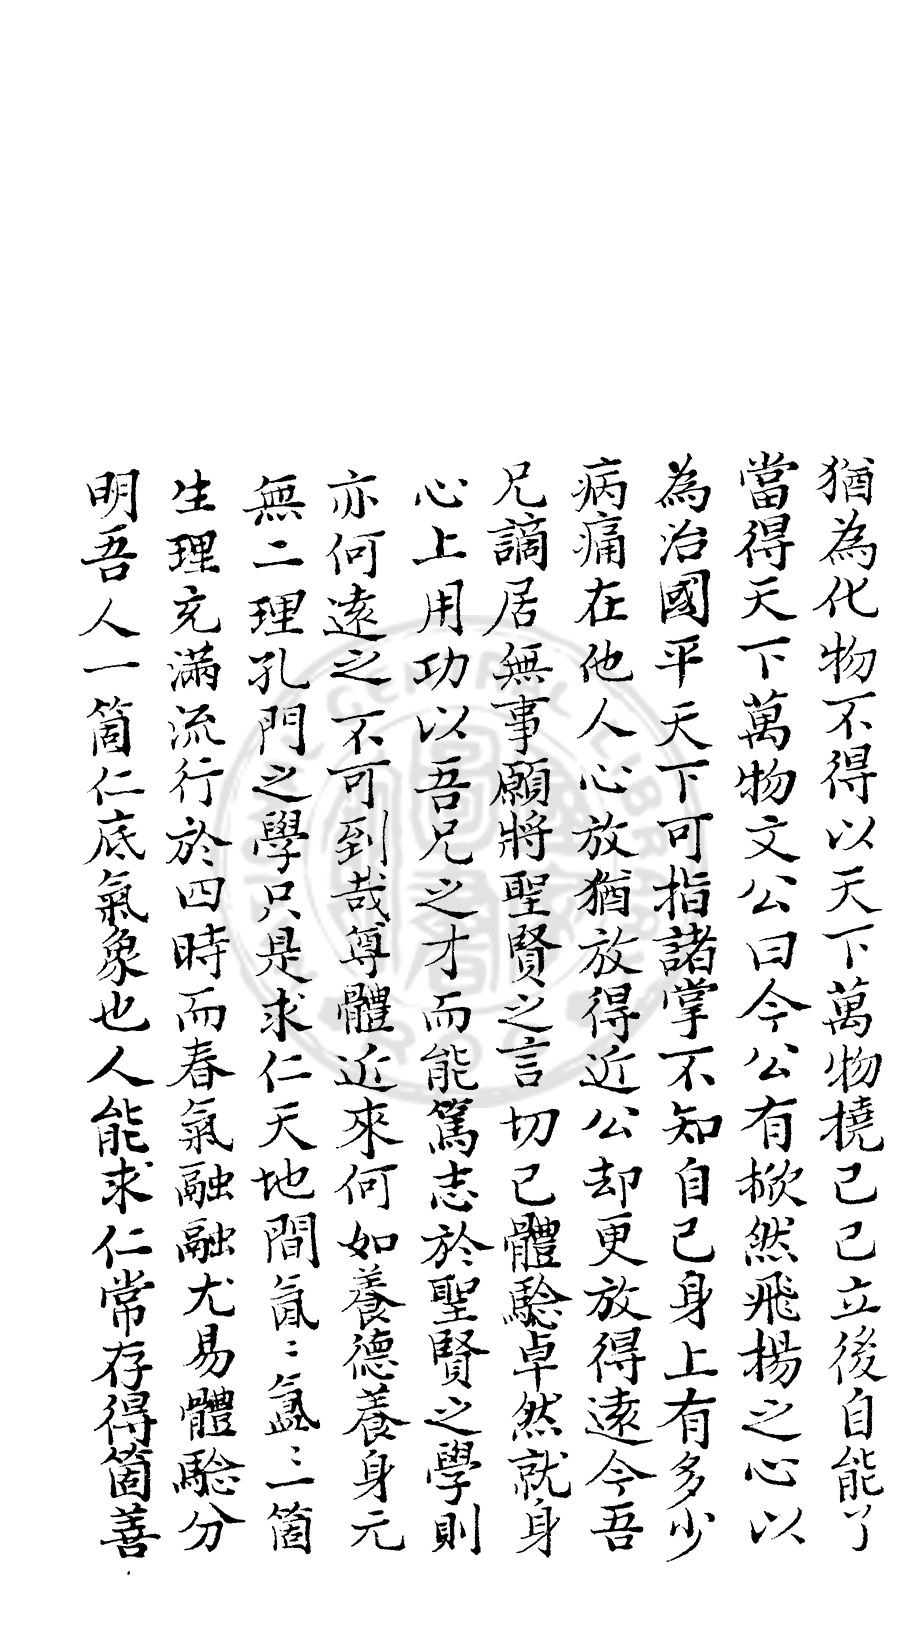 猶為化物不得以天下萬物撓己己立後自能了
當得天下萬物文公曰今公有掀然飛揚之心以
為治國平天下可指諸掌不知自己身上有多少
病痛在他人心放猶放得近公却更放得遠今吾
兄謫居無事願將聖賢之言切己體驗卓然就身
心上用功以吾兄之才而能篤志於聖賢之學則
亦何遠之不可到哉尊體近來何如養德養身元
無二理孔門之學只是求仁天地間氤〻氳〻一箇
生理充滿流行於四時而春氣融融尤易體驗分
明吾人一箇仁底氣象也人能求仁常存得箇善